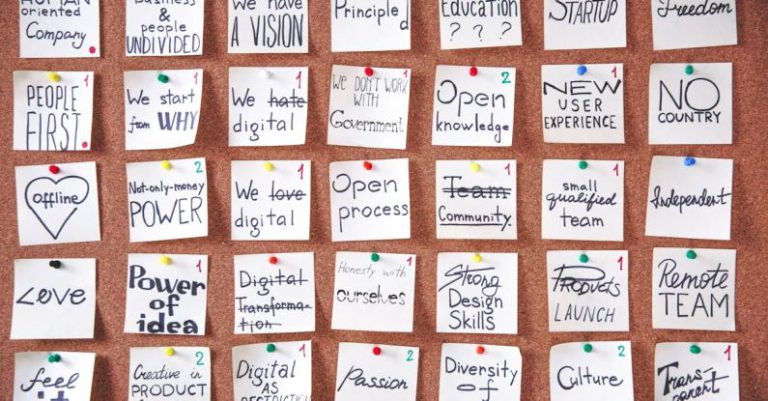 HUMAN
oriented
Company
Business
&
people
UNDIVIDED
We have
A VISION
Principled
Education
? ? ?
STARTUP
Freedom
PEOPLE
FIRST
1
We start
from WHY
1
We hate
digital
1
WE DON'T WORK
WITH
Government
1
Open
knowledge
2
NEW
USER
EXPERIENCE
1
NO
COUNTRY
offline
Not-only-money
POWER
2
We love
digital
1
Open
process
Team
Community
1
small
qualified
team
1
Independent
Love
Power
of
idea
1
Digital
Transforma-
tion
1
Honesty with
ourselves
1
Strong
Design
Skills
Products
LAUNCH
1
Remote
TEAM
feel
it
Creative in
PRODUCT
2
Digital
AS
1
Passion
2
Diversity
of
Culture
2
Trans-
parent
1